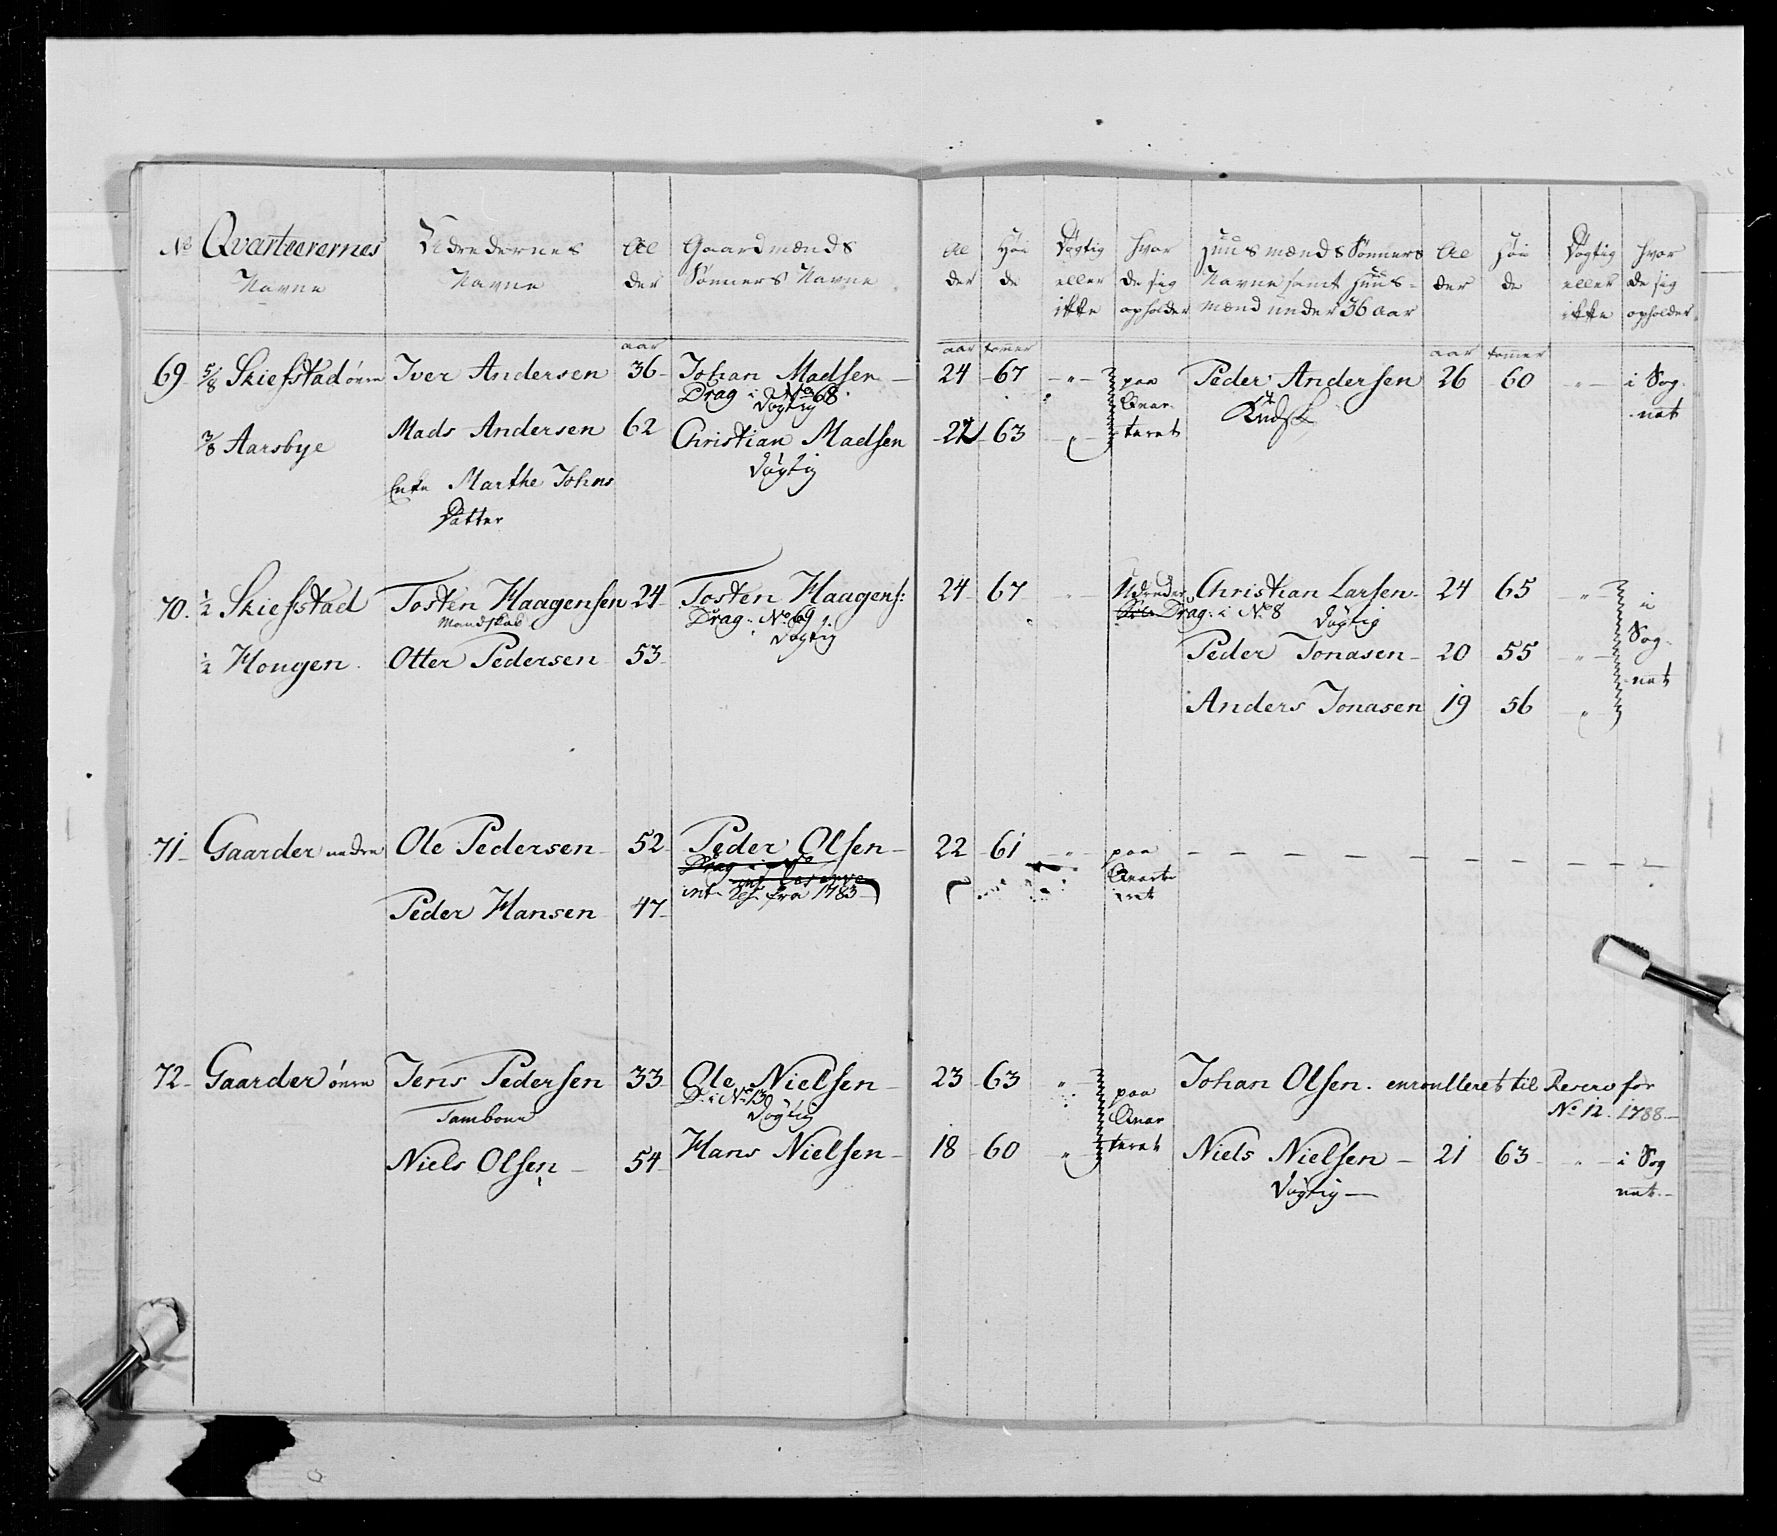 No Qvarteerernes Udredernes Al Gaardmænds Al Høi Døgtig hvor Huusmænds Sønners Al Høi Døgtig hvor
Navne Navne der Sønners Navne der de eller de sig Navne samt Huus- der de eller de sig
ikke opholder mænd under 36 aar ikke opholder
aar aar tomer aar tomer
69 5/8 Skiefstad öure Iver Andersen 36 Johan Madsen 24 67 " paa Peder Andersen 26 60 " i Sog
Drag i No 68 Døgtig Qvar
3/8 Aarsbye Mads Andersen 62 Christian Madsen 63 " teret net
Døgtig
Enke Marthe Johns
Datter
70. 1/2 Skiefstad Tosten Haagensen 24 Tosten Haagens: 24 67 " Udreder Christian Larsen 24 65 " i
Mandskab Drag: No 69 Drag: i No 8 Døgtig
Døgtig
1/2 Hougen. Otter Pedersen 53 Peder Jonasen 20 55 " Sog
Anders Jonasen 19 56 " net
71 Gaarder nedre Ole Pedersen 52 Peder Olsen 22 61 " paa
Drag i No Qvarte
fra 1783 ret
Peder Hansen 47
72 Gaarder öure Jens Pedersen 33 Ole Nielsen 23 63 " paa Johan Olsen. enroulleret til Reserv for
Tambour D: i No 13 Døgtig Qvar No 12. 1788
Niels Olsen 54 Hans Nielsen 18 60 " teret Niels Nielsen 21 63 " i Sog
Døgtig net